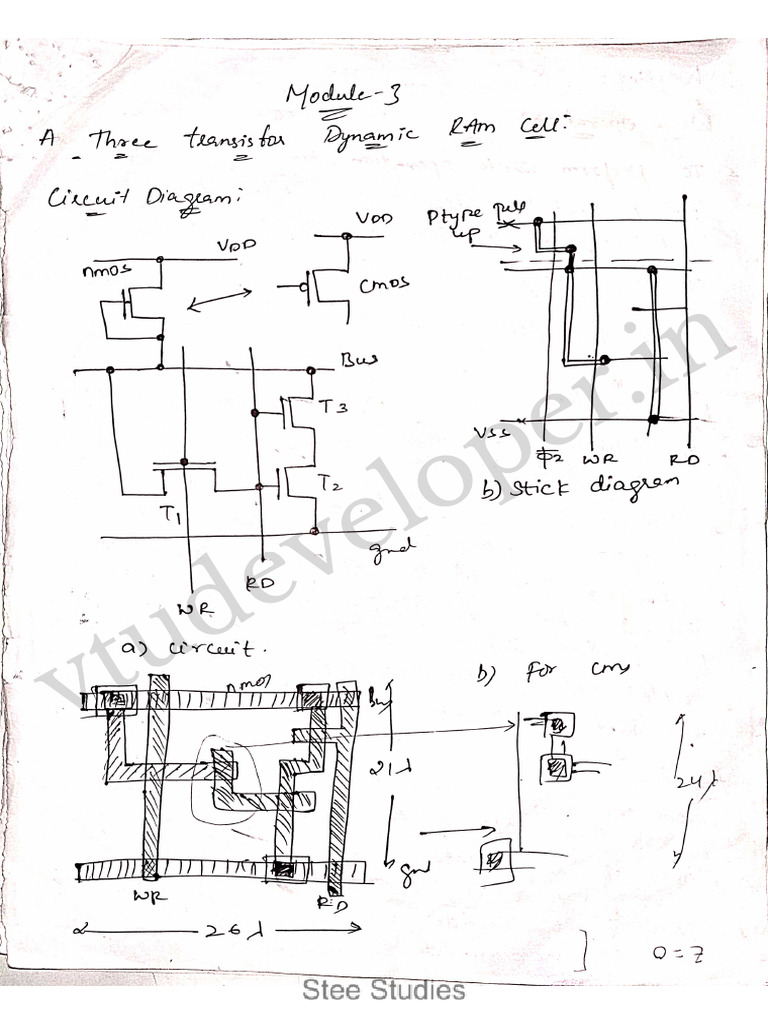 Module-3
A Three transistor Dynamic RAM Cell:
Circuit Diagram:
VDD
nmos
VDD
CMOS
Bus
T3
T2
T1
gnd
RD
WR
a) circuit.
Ptype pull
up
VSS
Φ2 WR RD
b) Stick diagram
nmos
Bus
21λ
gnd
WR
RD
26λ
b) For cms
24λ
vtudeveloper.in
Stee Studies